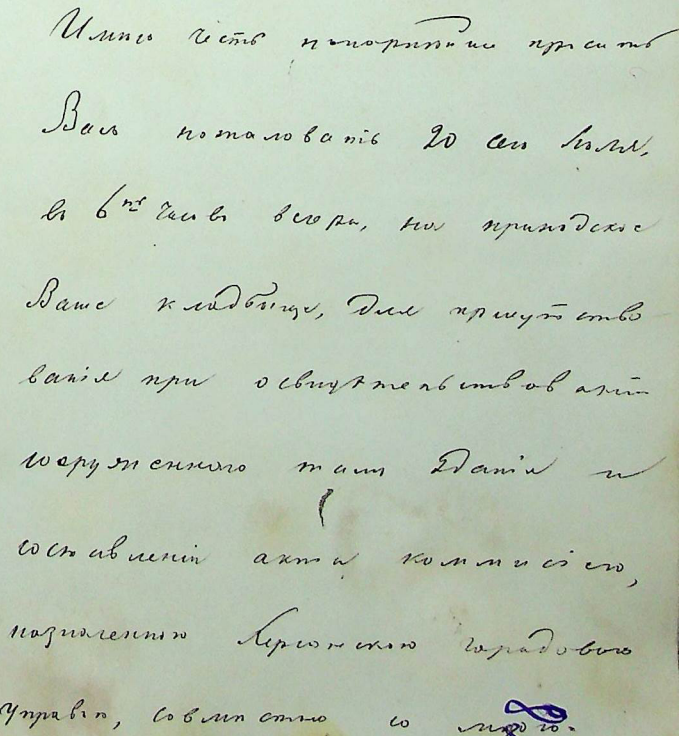 Имею честь покорнѣйше просить
Васъ пожаловать 20 сего Іюля,
въ 6ть часовъ вечера, на приходское
Ваше кладбище, для присутство
ванія при освидѣтельствованіи
сооруженнаго тамъ зданія и
составленіи акта коммисіею,
назначенною Херсонскою городовою
управою, совмѣстно со мною.